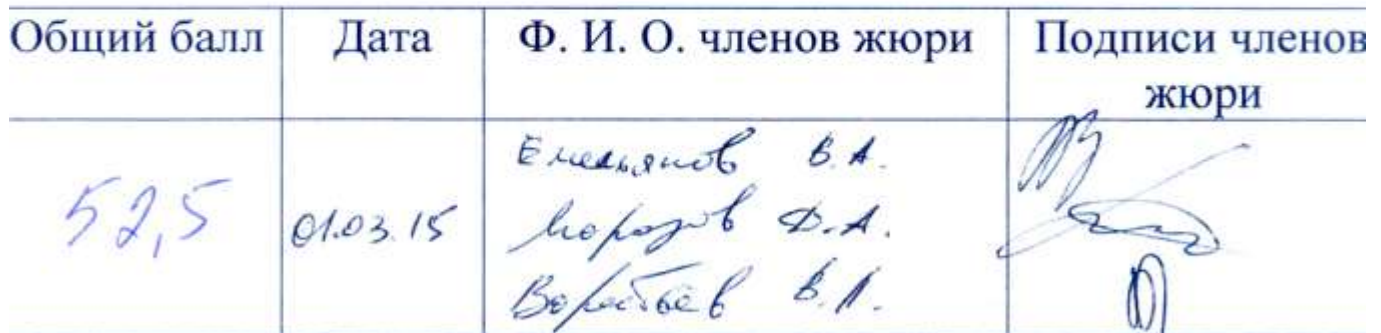 Общий балл
Дата
Ф. И. О. членов жюри
Подписи членов жюри
52,5
01.03.15
Емельянов В.А.
Морозов Д.А.
Воробьёв В.А.